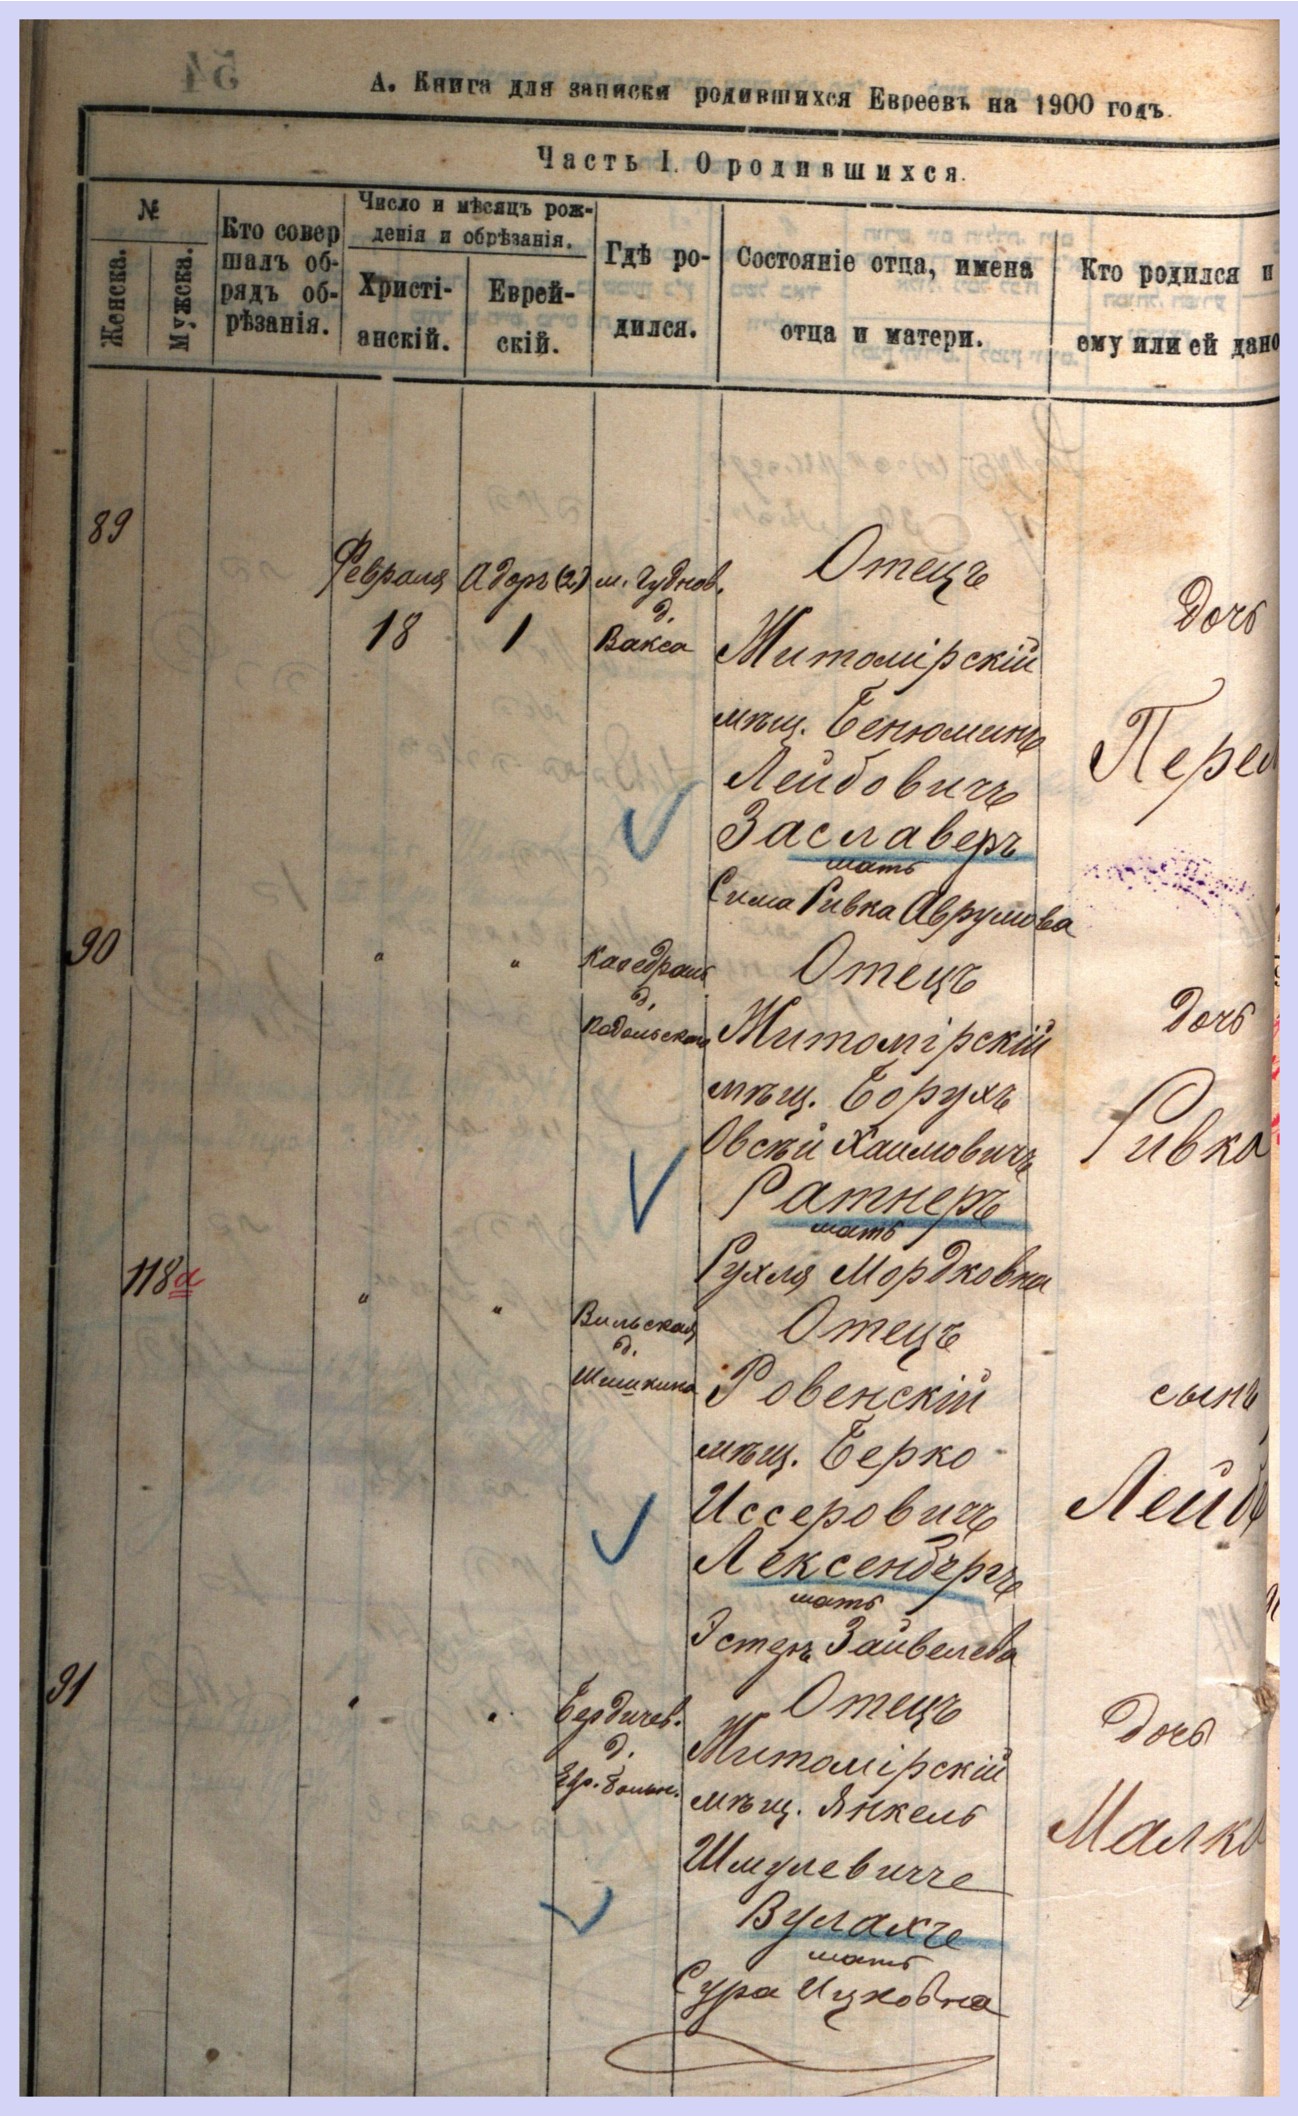 А. Книга для записки родившихся Евреевъ на 1900 годъ.
Часть I. О родившихся.
№
Женска.
Мужска.
Кто совер
шалъ об-
рядъ об-
рѣзанія.
Число и мѣсяцъ рож-
денія и обрѣзанія.
Христі-
анскій.
Еврей-
скій.
Гдѣ ро-
дился.
Состояніе отца, имена
отца и матери.
Кто родился и
ему или ей дано
89
Февраля
18
Адаръ (2)
1
м. Чуднов.
д.
Вакса
Отецъ
Житомірскій
мѣщ. Бенюминъ
Лейбовичъ
Заславеръ
мать
Сима Ривка Аврумова
дочь
Перел
90
"
"
Каѳедраль
д.
Подольскаго
Отецъ
Житомірскій
мѣщ. Борухъ
Овсѣй Хаимовичъ
Ратнеръ
мать
Рухля Мордковна
дочь
Ривка
118а
"
"
Вильская
д.
Шишкина
Отецъ
Ровенскій
мѣщ. Берко
Иссеровичъ
Лексенбергъ
мать
Эстеръ Зайвелева
сынъ
Лейбъ
91
"
"
Бердичев.
д.
Евр. больн.
Отецъ
Житомірскій
мѣщ. Янкель
Шмулевичъ
Вулахъ
мать
Сура Ицковна
дочь
Малка